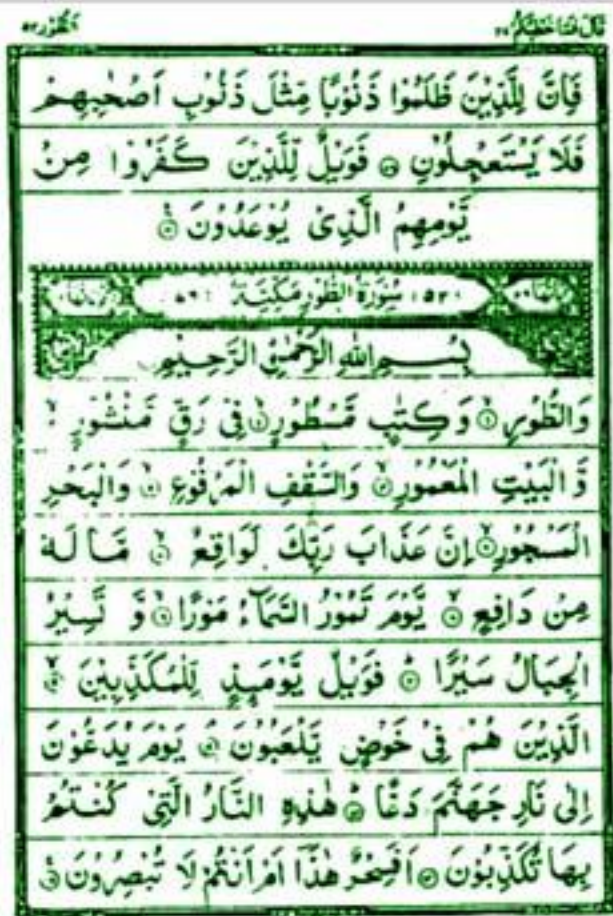 قال فما خطبكم ٢٧
الطور ٥٢
فَاِنَّ لِلَّذِيْنَ ظَلَمُوْا ذَنُوْبًا مِّثْلَ ذَنُوْبِ اَصْحٰبِهِمْ
فَلَا يَسْتَعْجِلُوْنِ ۝ فَوَيْلٌ لِّلَّذِيْنَ كَفَرُوْا مِنْ
يَّوْمِهِمُ الَّذِيْ يُوْعَدُوْنَ ۝
(٥٢) سُوْرَةُ الطُّوْرِ مَكِّيَّةٌ
بِسْمِ اللهِ الرَّحْمٰنِ الرَّحِيْمِ
وَالطُّوْرِ ۝ وَكِتٰبٍ مَّسْطُوْرٍ ۝ فِيْ رَقٍّ مَّنْشُوْرٍ ۝
وَّالْبَيْتِ الْمَعْمُوْرِ ۝ وَالسَّقْفِ الْمَرْفُوْعِ ۝ وَالْبَحْرِ
الْمَسْجُوْرِ ۝ اِنَّ عَذَابَ رَبِّكَ لَوَاقِعٌ ۝ مَّا لَهٗ
مِنْ دَافِعٍ ۝ يَّوْمَ تَمُوْرُ السَّمَآءُ مَوْرًا ۝ وَّ تَسِيْرُ
الْجِبَالُ سَيْرًا ۝ فَوَيْلٌ يَّوْمَىِٕذٍ لِّلْمُكَذِّبِيْنَ ۝
الَّذِيْنَ هُمْ فِيْ خَوْضٍ يَّلْعَبُوْنَ ۝ يَوْمَ يُدَعُّوْنَ
اِلٰى نَارِ جَهَنَّمَ دَعًّا ۝ هٰذِهِ النَّارُ الَّتِيْ كُنْتُمْ
بِهَا تُكَذِّبُوْنَ ۝ اَفَسِحْرٌ هٰذَآ اَمْ اَنْتُمْ لَا تُبْصِرُوْنَ ۝